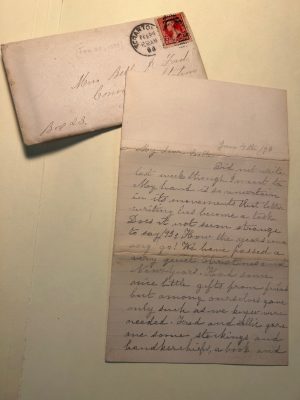 SCRANTON
98
Miss Bell
Box 23.
Jany 4th /98
My dear Bell
Did not write
last week though I meant to
My hand is so uncertain
in its movements that letter
writing has become a task
Does it not seem strange
to say '98? How the years
go! We have passed a
very quiet Christmas and
New Years. Had some
nice little gifts from
but among ourselves gave
only such as we knew were
needed. Fred and Allie gave
me some stockings and
handkerchiefs, a book and